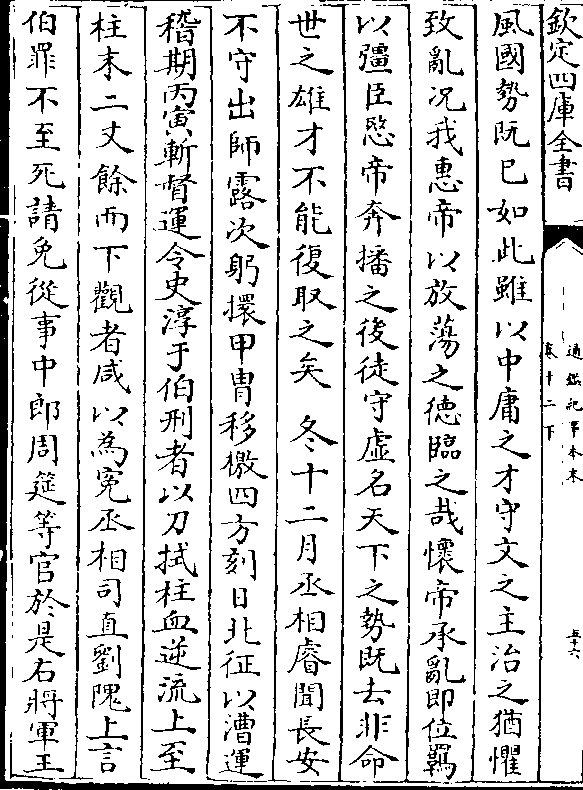 欽定四庫全書
通鑑紀事本末
卷十二下
五十六
風國勢既已如此雖以中庸之才守文之主治之猶懼
致亂况我惠帝以放蕩之德臨之哉懷帝承亂即位羈
以彊臣愍帝奔播之後徒守虚名天下之勢既去非命
世之雄才不能復取之矣　冬十二月丞相睿聞長安
不守出師露次躬擐甲胄移檄四方刻日北征以漕運
稽期丙寅斬督運令史淳于伯刑者以刀拭柱血逆流上至
柱末二丈餘而下觀者咸以為寃丞相司直劉隗上言
伯罪不至死請免從事中郎周莚等官於是右將軍王